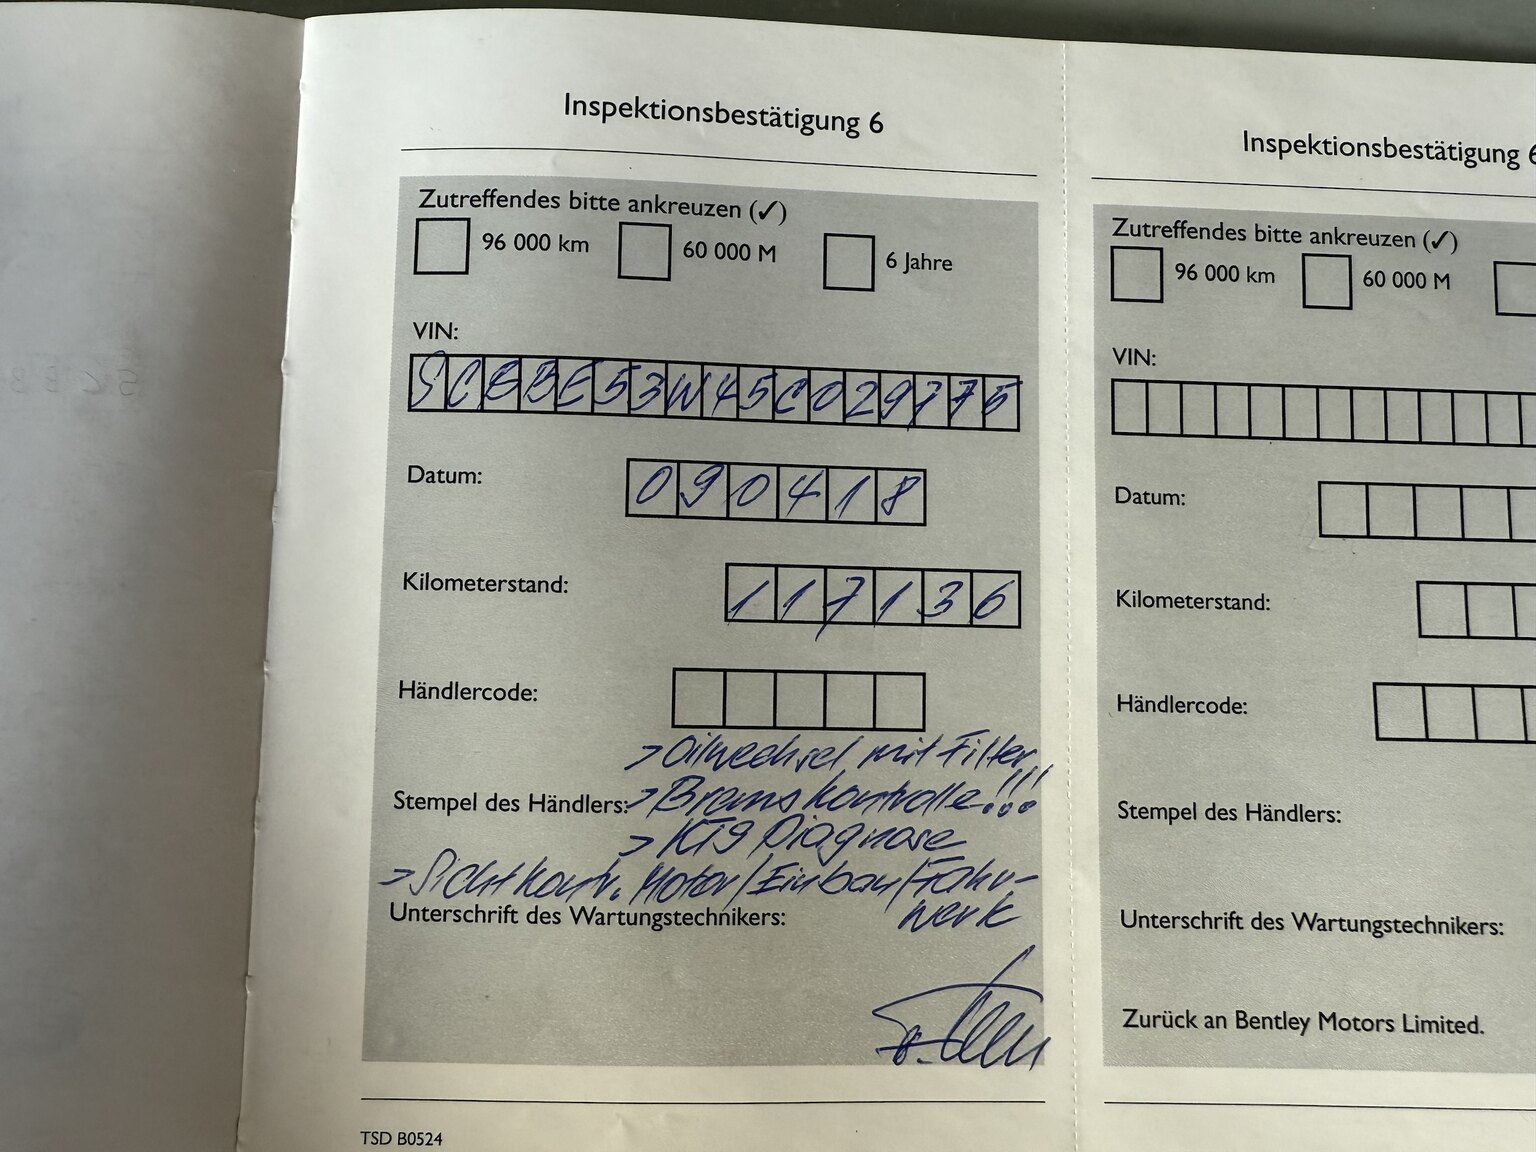 Inspektionsbestätigung 6
Zutreffendes bitte ankreuzen (✓)
96 000 km 60 000 M 6 Jahre
VIN:
SCBBE53W45C029775
Datum:
090418
Kilometerstand:
117136
Händlercode:
> Oilwechsel mit Filter
Stempel des Händlers: > Bremskontrolle!!!
> KTS Diagnose
> Sichtkontr. Motor/Einbau/Fahr-
werk
Unterschrift des Wartungstechnikers:
TSD B0524
Inspektionsbestätigung 6
Zutreffendes bitte ankreuzen (✓)
96 000 km 60 000 M
VIN:
Datum:
Kilometerstand:
Händlercode:
Stempel des Händlers:
Unterschrift des Wartungstechnikers:
Zurück an Bentley Motors Limited.